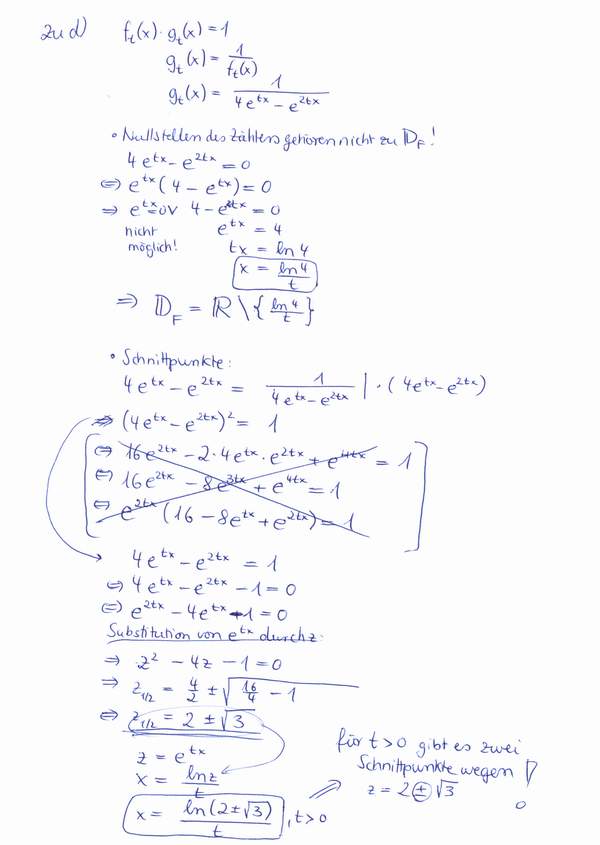 zu d) f_t(x) · g_t(x) = 1
g_t(x) = 1/f_t(x)
g_t(x) = 1/(4e^{tx} - e^{2tx})
• Nullstellen des Zählers gehören nicht zu 𝔻_F!
4e^{tx} - e^{2tx} = 0
⇔ e^{tx}(4 - e^{tx}) = 0
⇒ e^{tx}=0 ∨ 4 - e^{tx} = 0
nicht e^{tx} = 4
möglich! tx = ln 4
x = ln 4/t
⇒ 𝔻_F = ℝ \ {ln 4/t}
• Schnittpunkte:
4e^{tx} - e^{2tx} = 1/(4e^{tx} - e^{2tx}) | · (4e^{tx} - e^{2tx})
⇒ (4e^{tx} - e^{2tx})² = 1
⇔ 16e^{2tx} - 2·4e^{tx}·e^{2tx} + e^{4tx} = 1
⇔ 16e^{2tx} - 8e^{3tx} + e^{4tx} = 1
⇔ e^{2tx}(16 - 8e^{tx} + e^{2tx}) = 1
4e^{tx} - e^{2tx} = 1
⇔ 4e^{tx} - e^{2tx} - 1 = 0
⇔ e^{2tx} - 4e^{tx} + 1 = 0
Substitution von e^{tx} durch z:
⇒ z² - 4z - 1 = 0
⇒ z_{1/2} = 4/2 ± √(16/4 - 1)
⇔ z_{1/2} = 2 ± √3
z = e^{tx}
x = ln z/t
x = ln(2±√3)/t , t>0
⇒ für t>0 gibt es zwei
Schnittpunkte wegen
z = 2 ± √3 !